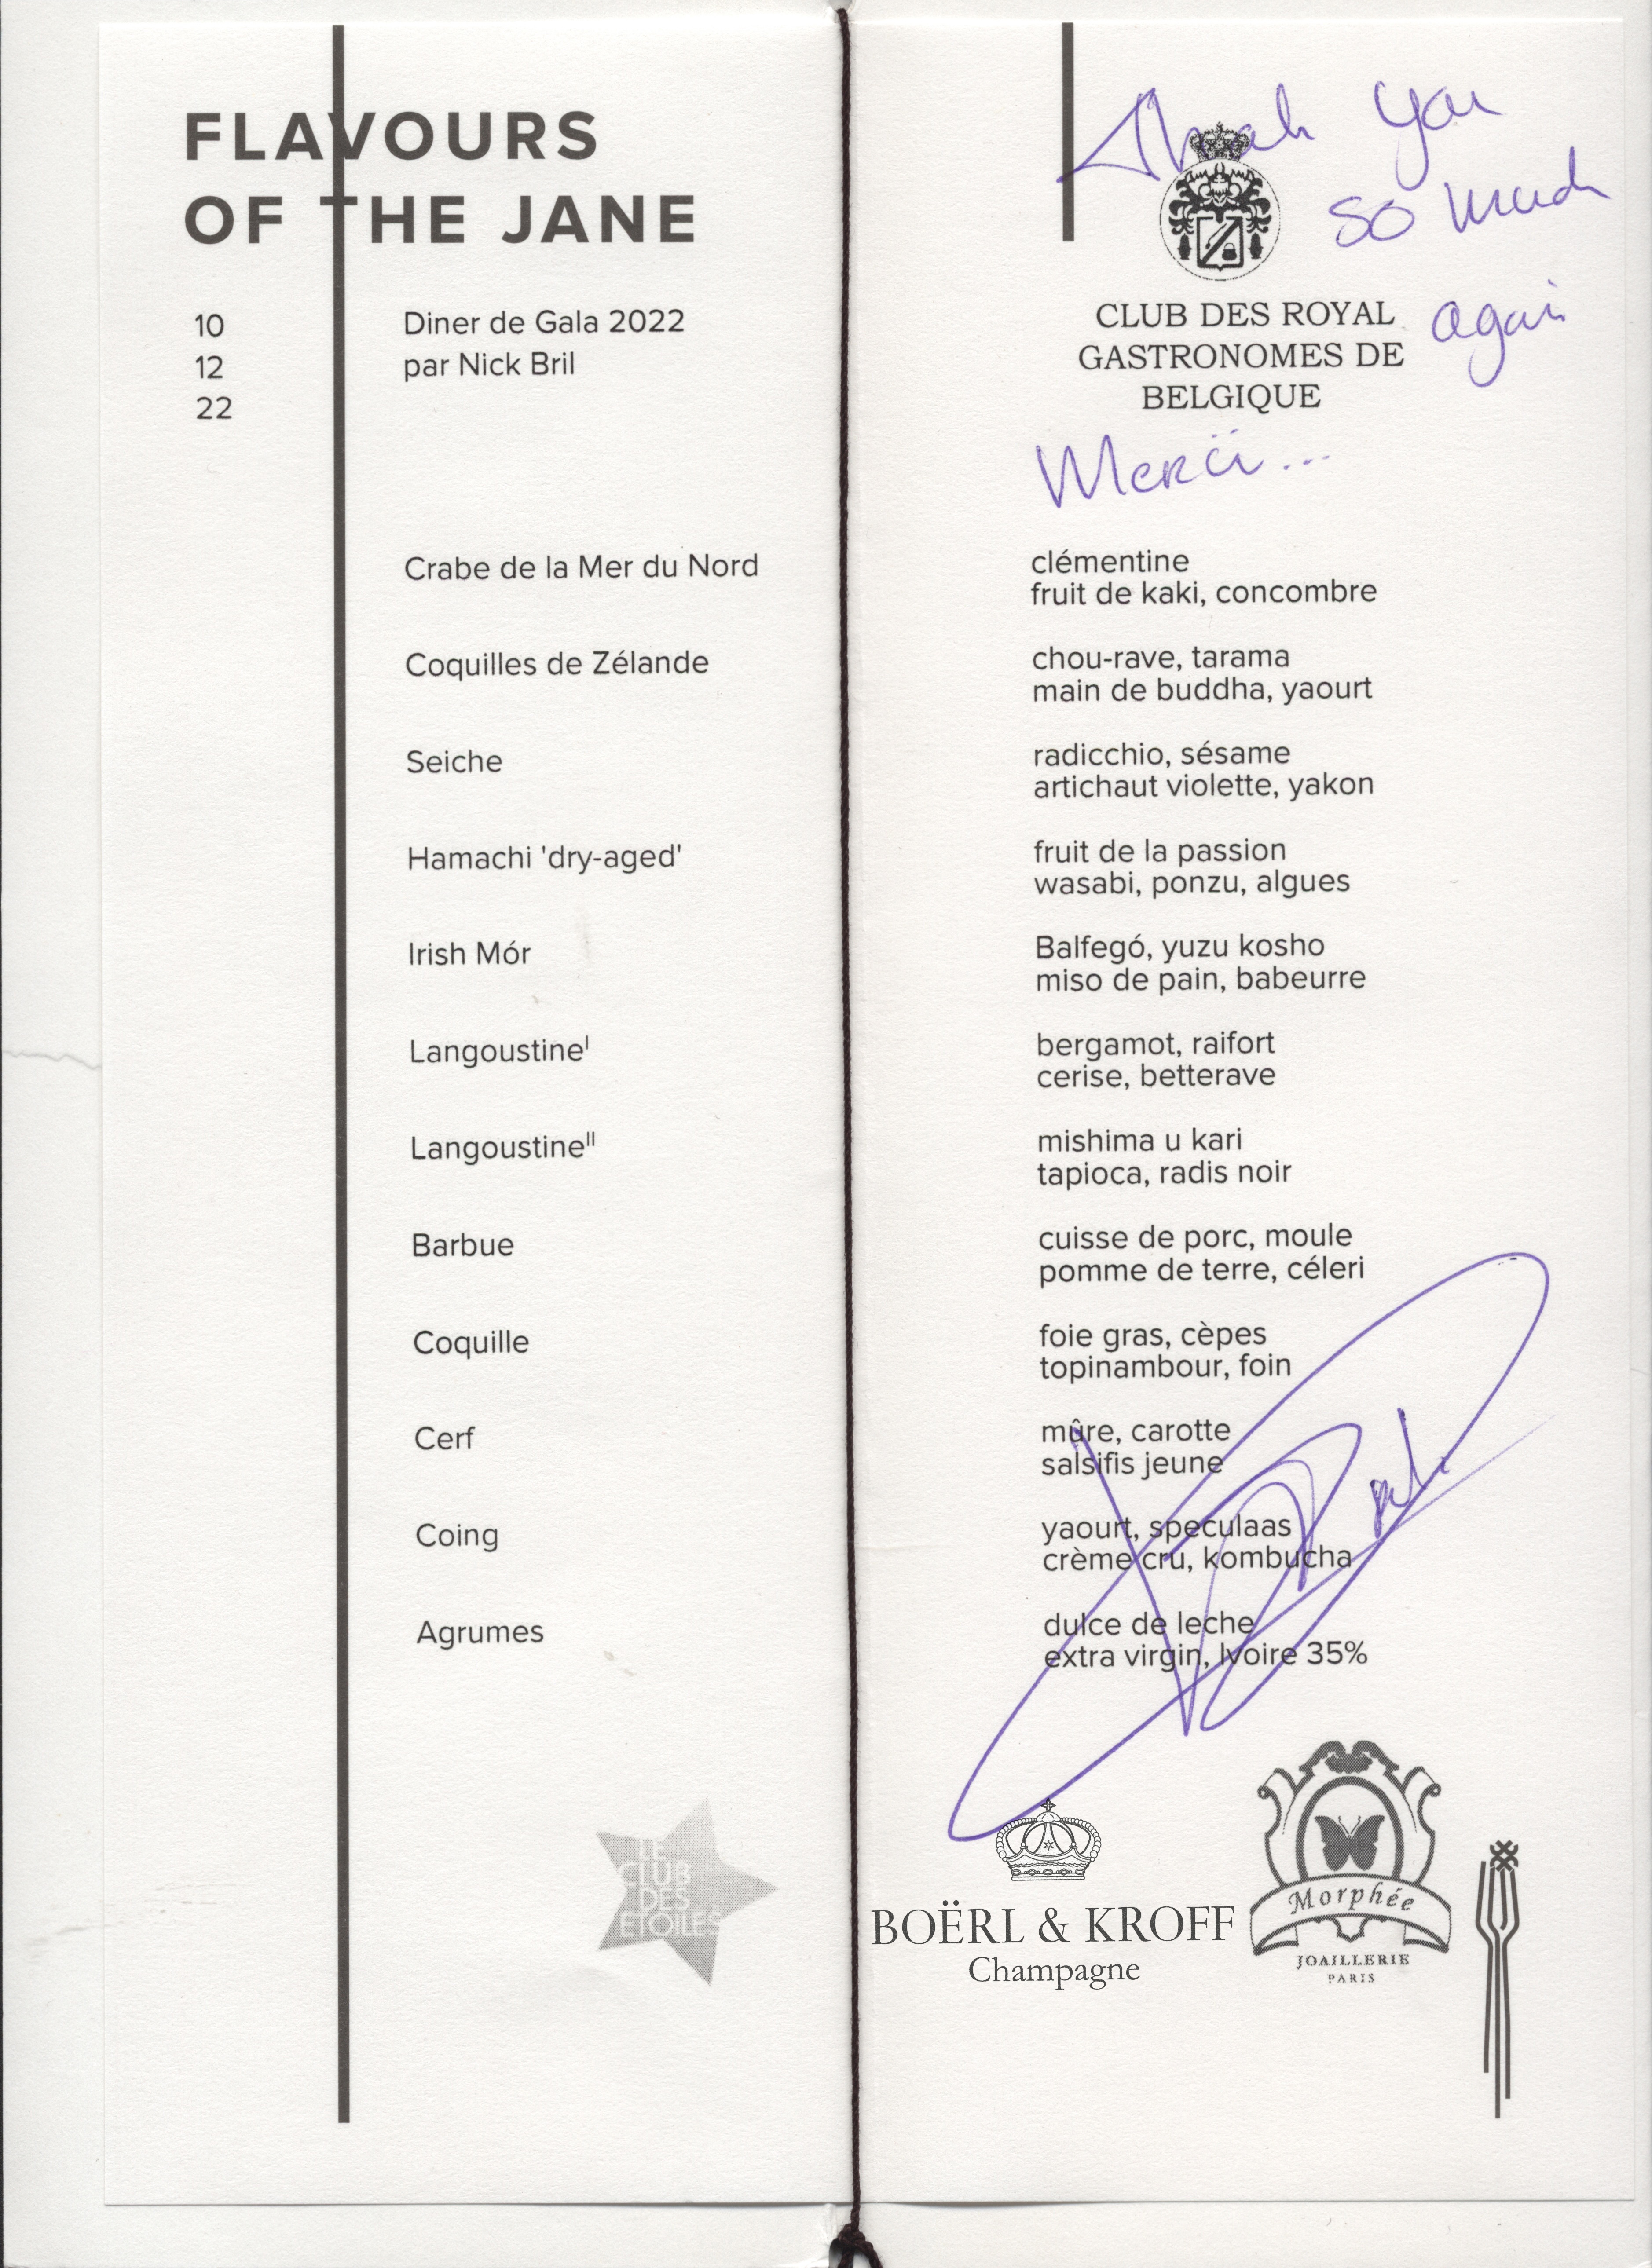 FLAVOURS
OF THE JANE
10
12
22
Diner de Gala 2022
par Nick Bril
Thank you
so much
again
CLUB DES ROYAL
GASTRONOMES DE
BELGIQUE
Merci...
Crabe de la Mer du Nord
clémentine
fruit de kaki, concombre
Coquilles de Zélande
chou-rave, tarama
main de buddha, yaourt
Seiche
radicchio, sésame
artichaut violette, yakon
Hamachi 'dry-aged'
fruit de la passion
wasabi, ponzu, algues
Irish Mór
Balfegó, yuzu kosho
miso de pain, babeurre
Langoustine I
bergamot, raifort
cerise, betterave
Langoustine II
mishima u kari
tapioca, radis noir
Barbue
cuisse de porc, moule
pomme de terre, céleri
Coquille
foie gras, cèpes
topinambour, foin
Cerf
mûre, carotte
salsifis jeune
Coing
yaourt, speculaas
crème cru, kombucha
Agrumes
dulce de leche
extra virgin, Ivoire 35%
LE
CLUB
DES
ETOILES
BOËRL & KROFF
Champagne
Morphée
JOAILLERIE
PARIS